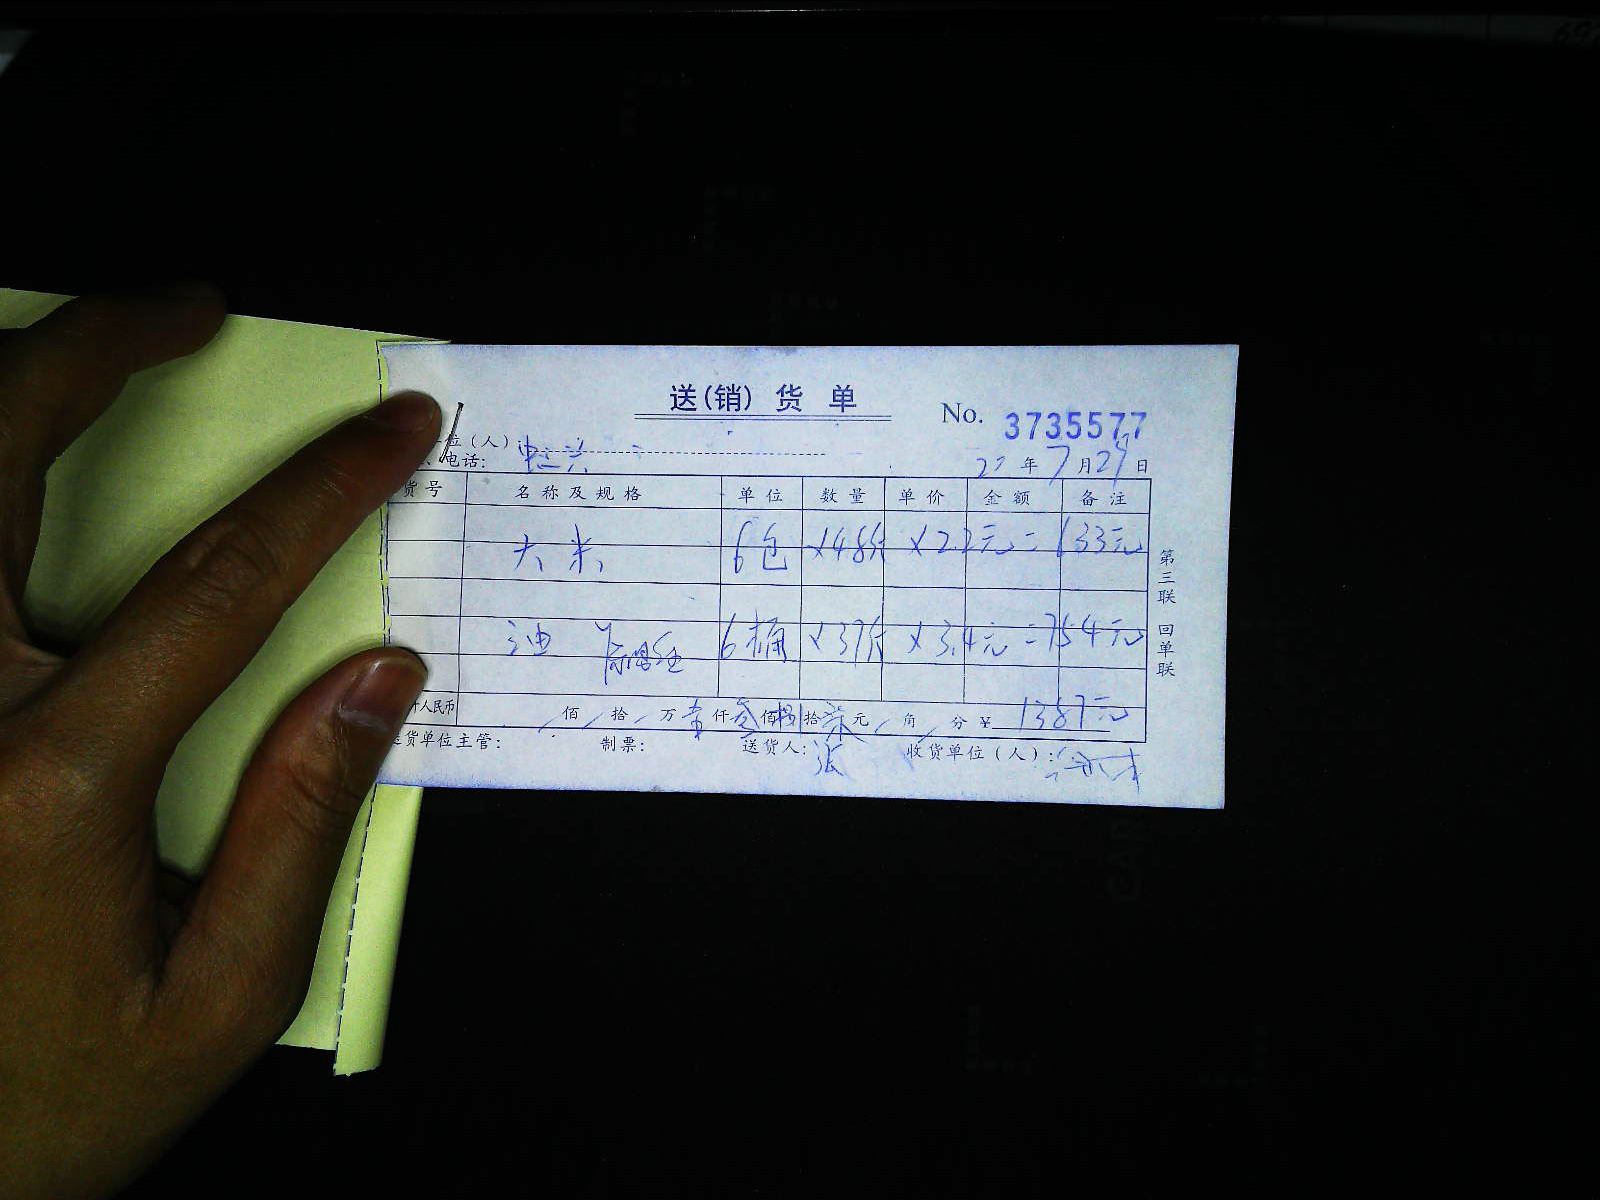 送(销)货单
No. 3735577
位(人):
电话:
年7月29日
货号 名称及规格 单位 数量 单价 金额 备注
大米 6包 ×48斤 ×2.2元=633元
油 6桶 ×37斤 ×3.4元=754元
人民币 / 佰 / 拾 / 万 壹 仟 叁 佰 捌 拾 柒 元 / 角 / 分 ¥ 1387元
送货单位主管: 制票: 送货人:张 收货单位(人):
第三联 回单联